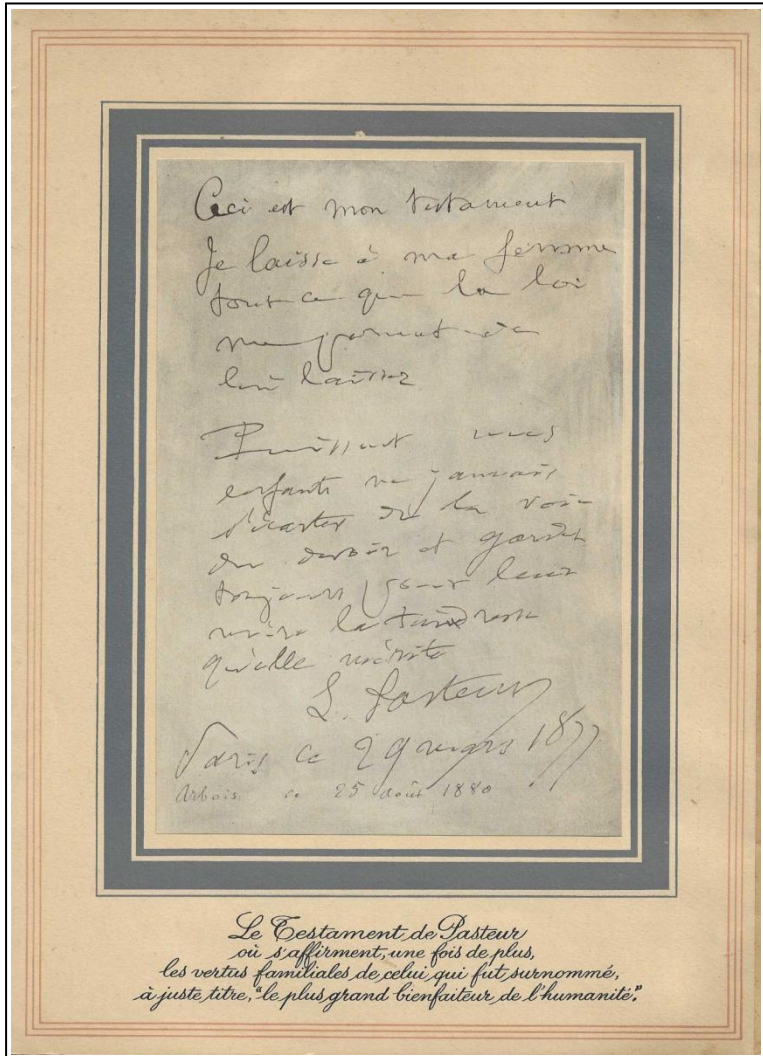 Ceci est mon testament
Je laisse à ma femme
tout ce que la loi
me permet de
lui laisser
Puissent mes
enfants ne jamais
s'écarter de la voie
du devoir et garder
toujours pour leur
mère la tendresse
qu'elle mérite
L. Pasteur
Paris ce 29 mars 1877
Arbois. ce 25 août 1880
Le Testament de Pasteur
où s'affirment, une fois de plus,
les vertus familiales de celui qui fut surnommé,
à juste titre, "le plus grand bienfaiteur de l'humanité".